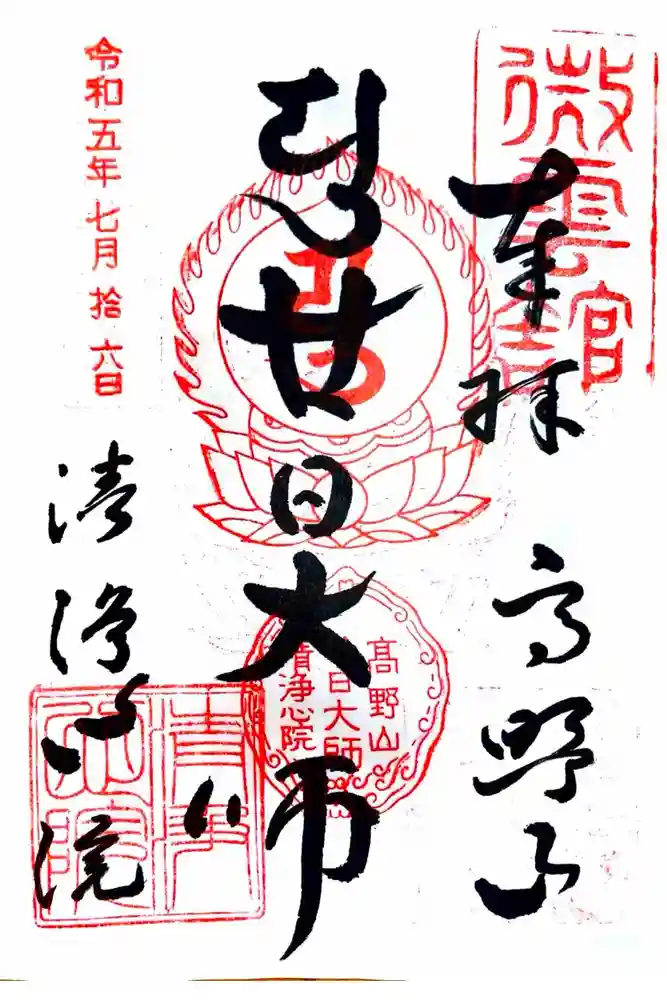 奉拝
高野山
廿日大師
清浄心院
令和五年七月拾六日
高野山
廿日大師
清浄心院
清浄心院